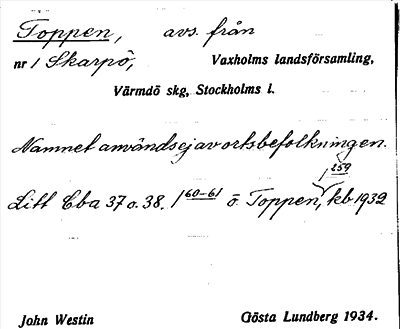 Toppen, avs. från
nr 1 Skarpö, Vaxholms landsförsamling,
Värmdö skg, Stockholms l.
Namnet användes ej av ortsbefolkningen.
259
Litt Cba 37 o. 38. 160-61 ö. Toppen, kb 1932
John Westin Gösta Lundberg 1934.